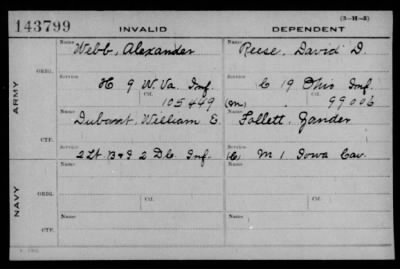 143799 INVALID DEPENDENT (3-H-3)
Name Webb, Alexander Name Reese, David D.
ORIG.
Service H 9 W. Va. Inf. Service C 19 Ohio Inf.
Ctf. 105449 (m) Ctf. 99006
ARMY
Name William E. Name Follett, Zander
CTF.
Service 2 Lt. B & I 2 D.C. Inf. Service (C) M 1 Iowa Cav.
Name Name
ORIG.
Service Ctf. Service Ctf.
NAVY
Name Name
CTF.
Service Service